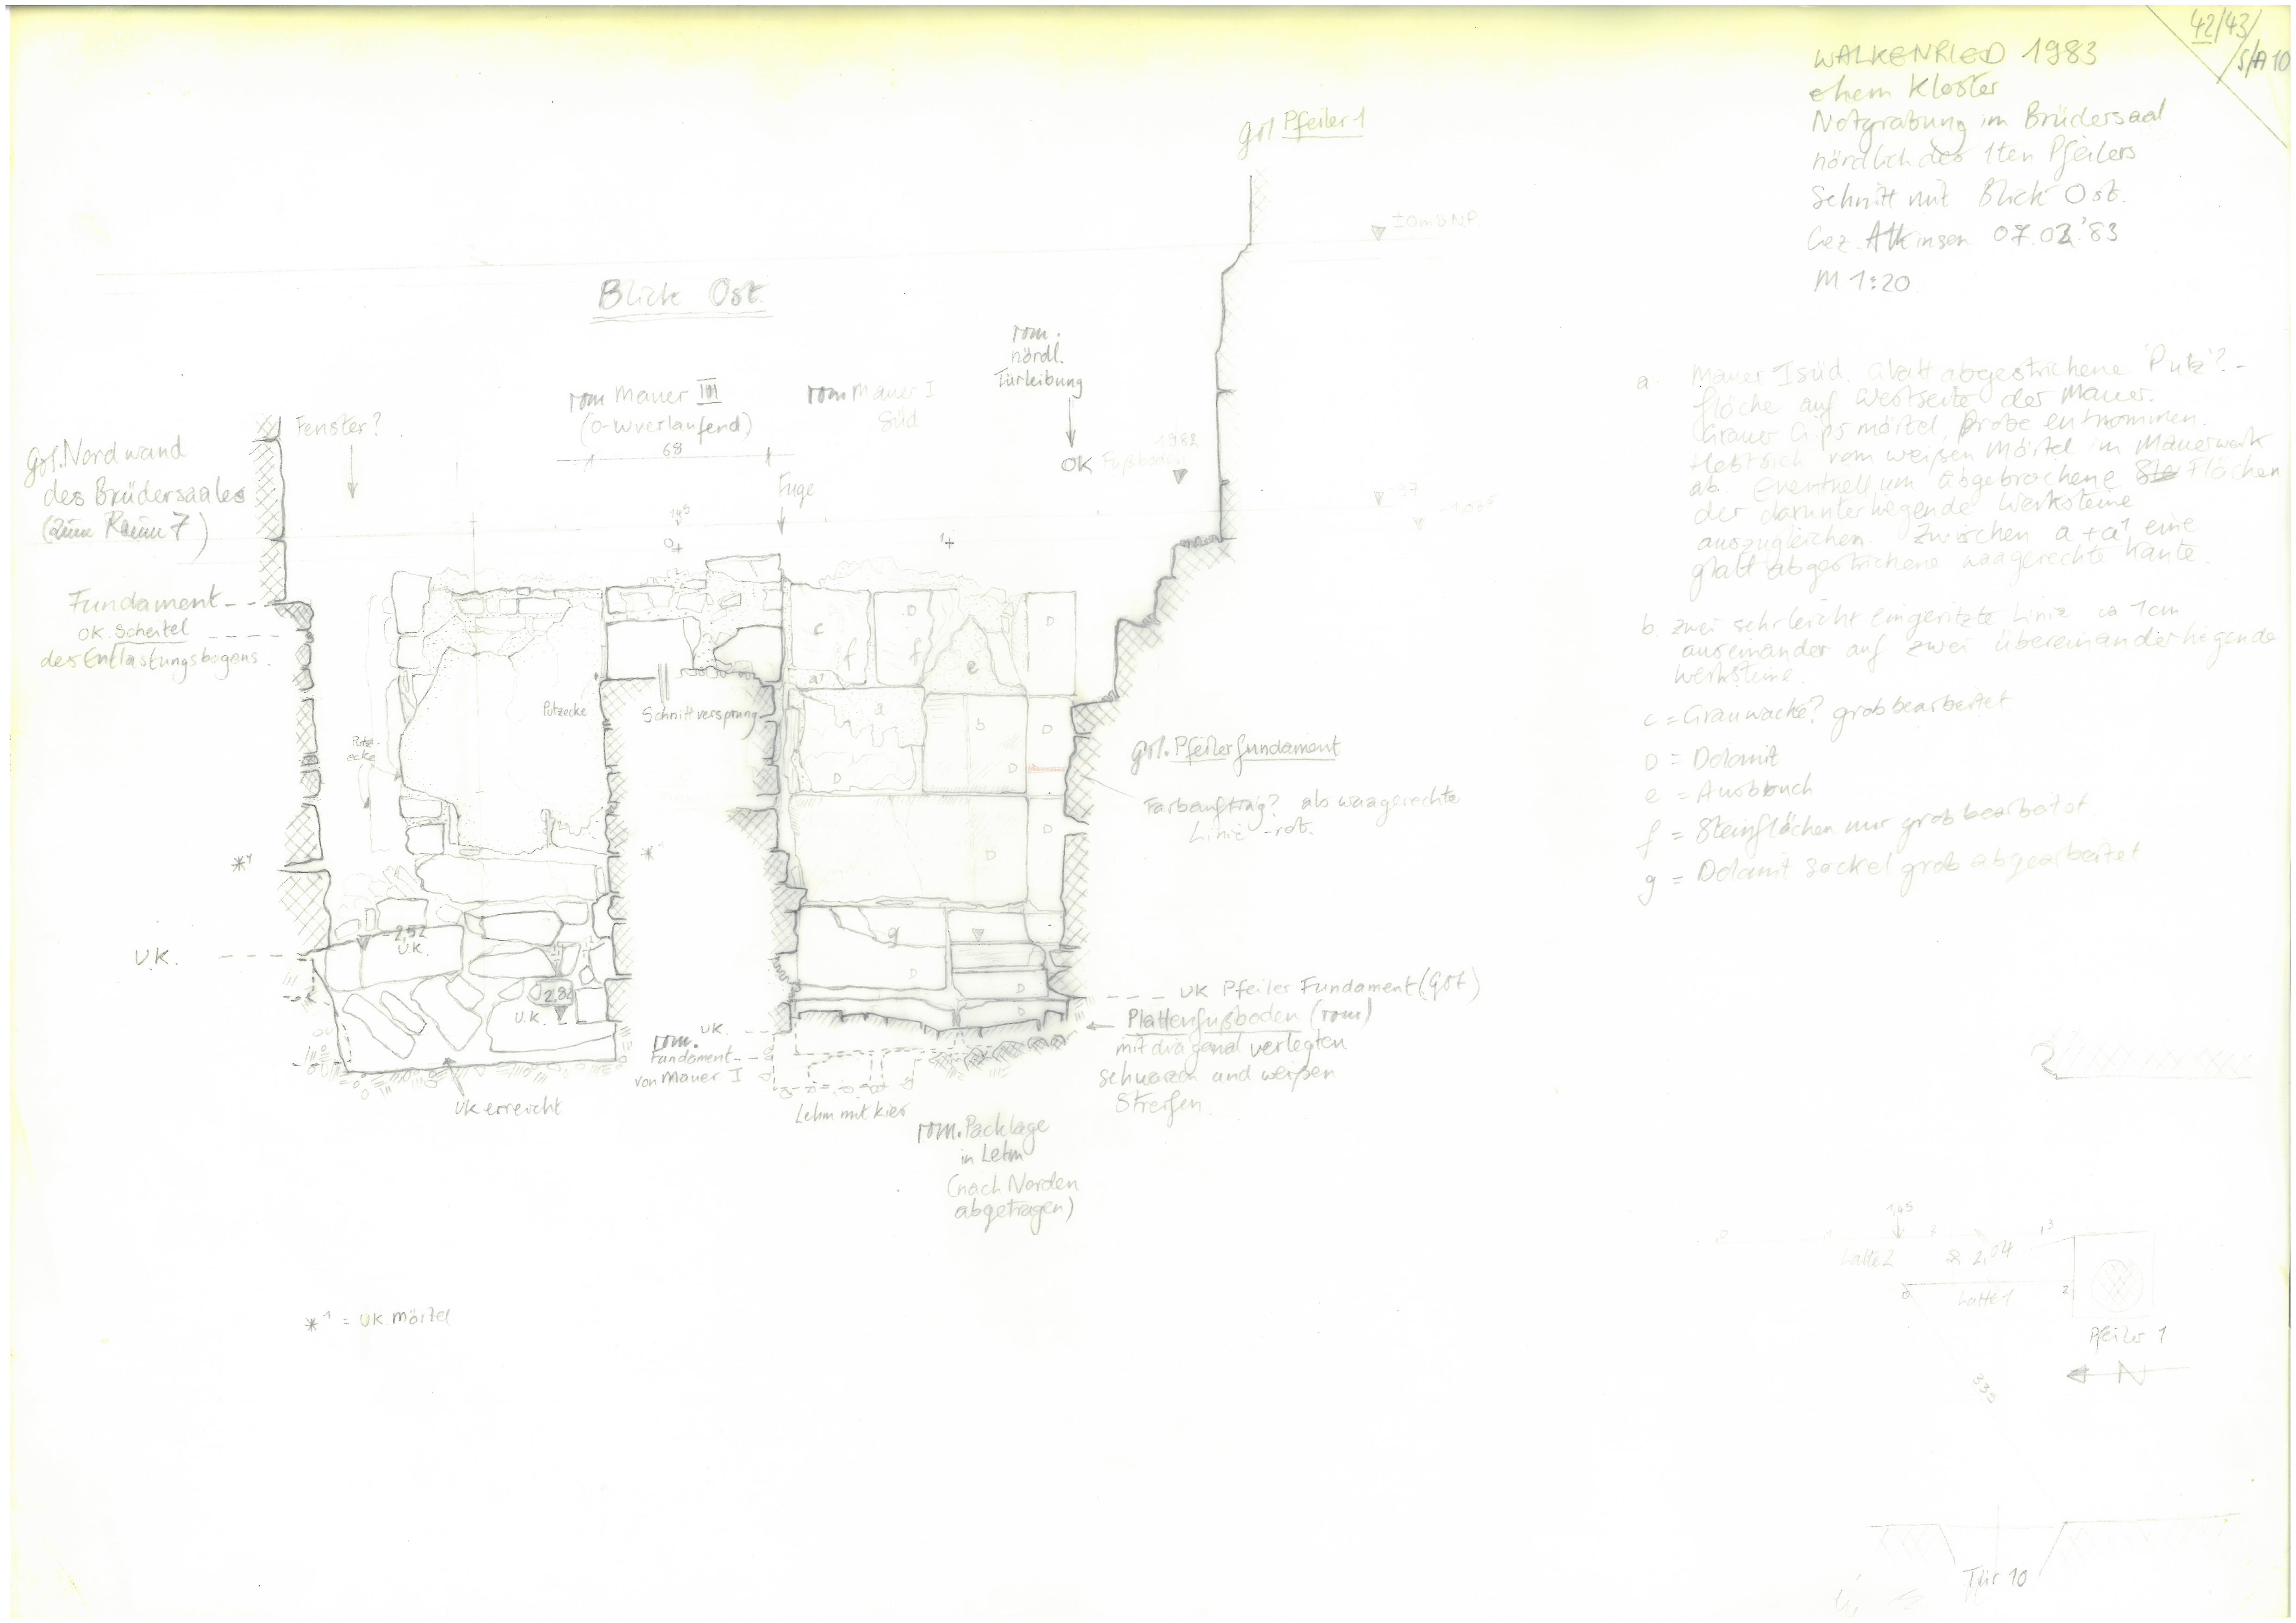 42/43/
S/A 10
WALKENRIED 1983
ehem Kloster
Notgrabung im Brüdersaal
nördlich des 1ten Pfeilers
Schnitt mit Blick Ost.
Gez. Atkinson 07.02.'83
M 1:20.
got Pfeiler 1
±0m b N.P.
Blick Ost.
rom.
nördl.
Türleibung
rom Mauer III
(O-W verlaufend)
68
rom Mauer I
Süd
Fenster?
got. Nordwand
des Brüdersaales
(zum Raum 7)
1982
OK Fußboden
Fuge
-97
0+
1+
Fundament
OK. Scheitel
des Entlastungsbogens.
Putzecke
Schnittversprung
Putz-
ecke
c
f
D
f
e
D
a1
a
b
D
D
D
D
D
g
D
D
D
got. Pfeilerfundament
Farbauftrag? als waagerechte
Linie -rot.
*1
*1
U.K.
-2,52
U.K.
2,82
U.K.
UK Pfeiler Fundament (Got)
Plattenfußboden (rom)
mit diagonal verlegten
schwarzen und weißen
Streifen.
UK.
rom.
Fundament
von Mauer I
UK erreicht
Lehm mit Kies
rom. Packlage
in Lehm
(nach Norden
abgetragen)
*1 = UK Mörtel
a Mauer I süd. Glatt abgestrichene 'Putz'?-
fläche auf Westseite der Mauer.
Grauer Gipsmörtel, Probe entnommen.
Hebt sich vom weißen Mörtel im Mauerwerk
ab. Eventuell um abgebrochene Flächen
der darunterliegende Werksteine
auszugleichen. Zwischen a + a1 eine
glatt abgestrichene waagerechte Kante.
b zwei sehr leicht eingeritzte Linie ca 1cm
auseinander auf zwei übereinanderliegende
Werksteine.
c = Grauwacke? grob bearbeitet
D = Dolomit
e = Ausbruch
f = Steinflächen nur grob bearbeitet
g = Dolomit sockel grob abgearbeitet
1,45
Latte 2
2,04
Latte 1
2
Pfeiler 1
N
339
Tür 10